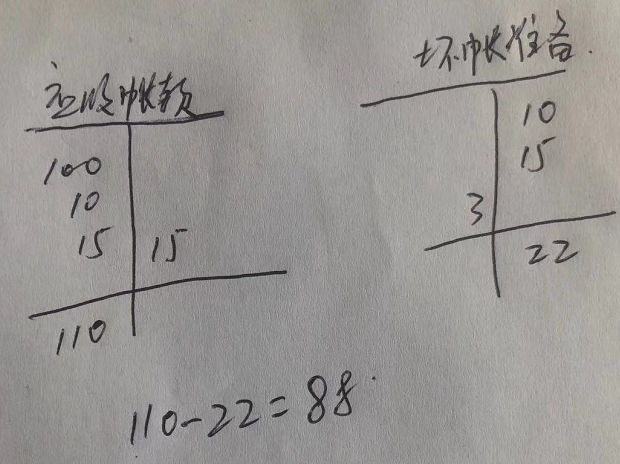 应收帐款
100
10
15 15
110
坏帐准备.
10
15
3
22
110-22=88.